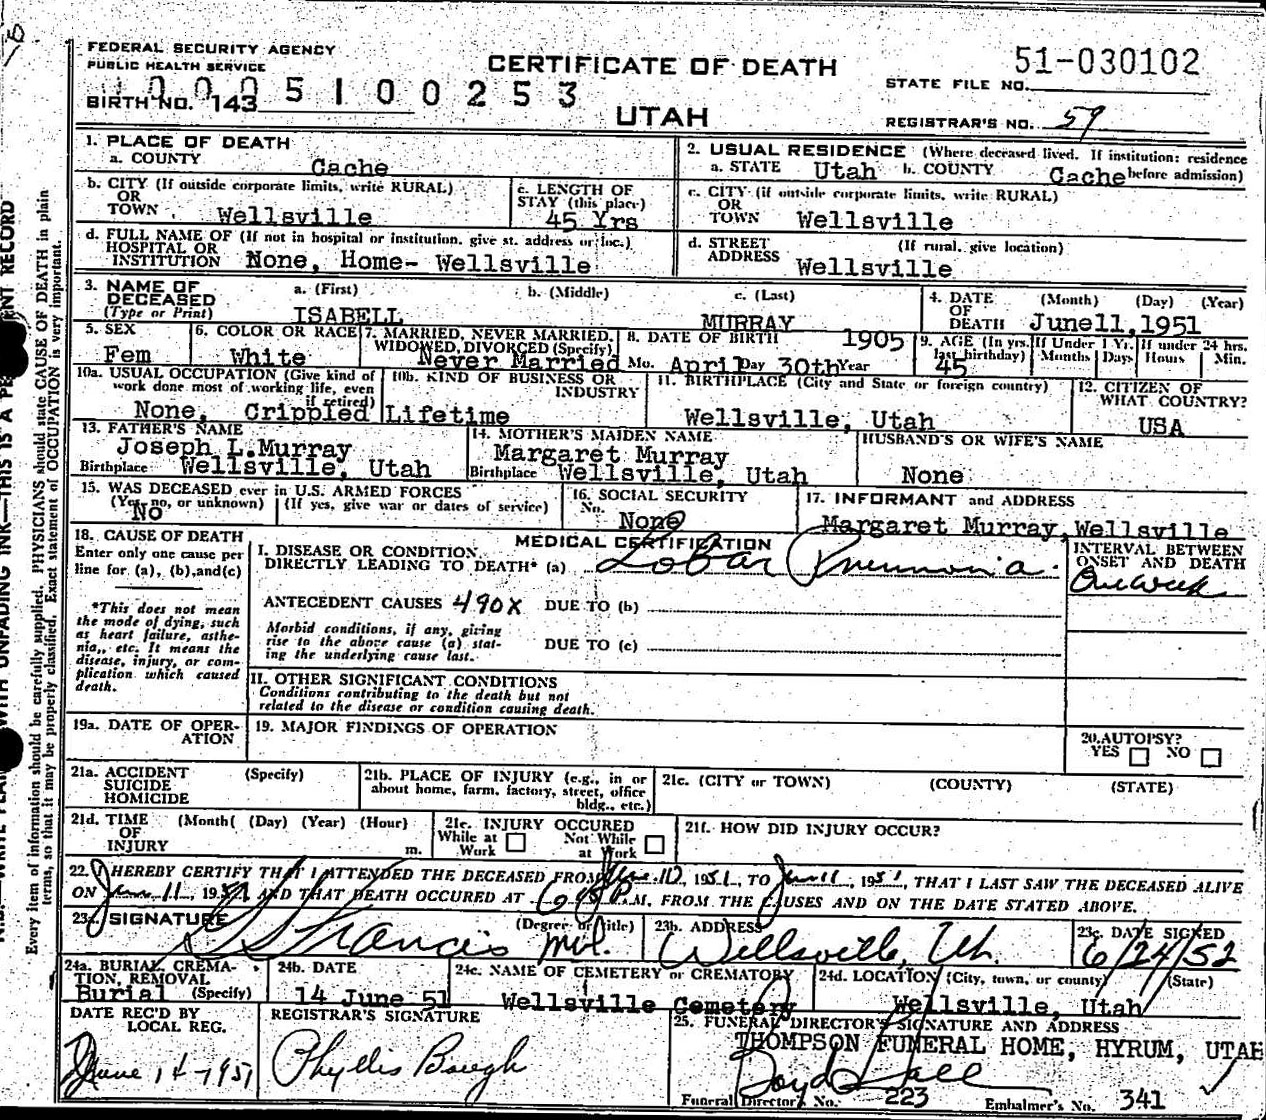 FEDERAL SECURITY AGENCY
PUBLIC HEALTH SERVICE
CERTIFICATE OF DEATH
51-030102
STATE FILE NO.
1 0 0 0 5 1 0 0 2 5 3
BIRTH NO. 143
UTAH
REGISTRAR'S NO. 59
1. PLACE OF DEATH
a. COUNTY Cache
2. USUAL RESIDENCE (Where deceased lived. If institution: residence before admission)
a. STATE Utah b. COUNTY Cache
b. CITY (If outside corporate limits, write RURAL)
OR
TOWN Wellsville
c. LENGTH OF
STAY (this place)
45 Yrs
c. CITY (if outside corporate limits, write RURAL)
OR
TOWN Wellsville
d. FULL NAME OF (If not in hospital or institution, give st. address or loc.)
HOSPITAL OR
INSTITUTION None, Home- Wellsville
d. STREET (If rural, give location)
ADDRESS Wellsville
3. NAME OF DECEASED
(Type or Print)
a. (First) b. (Middle) c. (Last)
ISABELL MURRAY
4. DATE OF DEATH (Month) (Day) (Year)
June11,1951
5. SEX
Fem
6. COLOR OR RACE
White
7. MARRIED, NEVER MARRIED,
WIDOWED, DIVORCED (Specify)
Never Married
8. DATE OF BIRTH 1905
Mo. April Day 30th Year
9. AGE (In yrs. last birthday)
45
If Under 1 Yr. Months Days
If under 24 hrs. Hours Min.
10a. USUAL OCCUPATION (Give kind of
work done most of working life, even
if retired)
None, Crippled
10b. KIND OF BUSINESS OR
INDUSTRY
Lifetime
11. BIRTHPLACE (City and State or foreign country)
Wellsville, Utah
12. CITIZEN OF
WHAT COUNTRY?
USA
13. FATHER'S NAME
Joseph L.Murray
Birthplace Wellsville, Utah
14. MOTHER'S MAIDEN NAME
Margaret Murray
Birthplace Wellsville, Utah
HUSBAND'S OR WIFE'S NAME
None
15. WAS DECEASED ever in U.S. ARMED FORCES
(Yes, no, or unknown) (If yes, give war or dates of service)
No
16. SOCIAL SECURITY
No. None
17. INFORMANT and ADDRESS
Margaret Murray, Wellsville
18. CAUSE OF DEATH
Enter only one cause per
line for (a), (b), and(c)
MEDICAL CERTIFICATION
I. DISEASE OR CONDITION
DIRECTLY LEADING TO DEATH* (a) Lobar Pneumonia.
INTERVAL BETWEEN
ONSET AND DEATH
One Week
*This does not mean
the mode of dying, such
as heart failure, asthe-
nia, etc. It means the
disease, injury, or com-
plication which caused
death.
ANTECEDENT CAUSES 490X DUE TO (b)
Morbid conditions, if any, giving
rise to the above cause (a) stat-
ing the underlying cause last.
DUE TO (c)
II. OTHER SIGNIFICANT CONDITIONS
Conditions contributing to the death but not
related to the disease or condition causing death.
19a. DATE OF OPER-
ATION
19. MAJOR FINDINGS OF OPERATION
20.AUTOPSY?
YES NO
21a. ACCIDENT (Specify)
SUICIDE
HOMICIDE
21b. PLACE OF INJURY (e.g., in or
about home, farm, factory, street, office
bldg., etc.)
21c. (CITY or TOWN) (COUNTY) (STATE)
21d. TIME (Month( (Day) (Year) (Hour)
OF
INJURY m.
21e. INJURY OCCURED
While at Work Not While at Work
21f. HOW DID INJURY OCCUR?
22. I HEREBY CERTIFY THAT I ATTENDED THE DECEASED FROM June 10, 1951, TO June 11, 1951, THAT I LAST SAW THE DECEASED ALIVE
ON June 11, 1951 AND THAT DEATH OCCURED AT P.M. FROM THE CAUSES AND ON THE DATE STATED ABOVE.
23. SIGNATURE (Degree or title)
Francis M.D.
23b. ADDRESS
Wellsville, Ut.
23c. DATE SIGNED
6/24/52
24a. BURIAL, CREMA-
TION, REMOVAL
Burial (Specify)
24b. DATE
14 June 51
24c. NAME OF CEMETERY or CREMATORY
Wellsville Cemetery
24d. LOCATION (City, town, or county) (State)
Wellsville, Utah
DATE REC'D BY
LOCAL REG.
June 14-1951
REGISTRAR'S SIGNATURE
Phyllis Baugh
25. FUNERAL DIRECTOR'S SIGNATURE AND ADDRESS
THOMPSON FUNERAL HOME, HYRUM, UTAH
Boyd Hall
Funeral Director's No. 223 Embalmer's No. 341
Every item of information should be carefully supplied. PHYSICIANS should state CAUSE OF DEATH in plain
terms, so that it may be properly classified. Exact statement of OCCUPATION is very important.
WITH UNFADING INK—THIS IS A RECORD